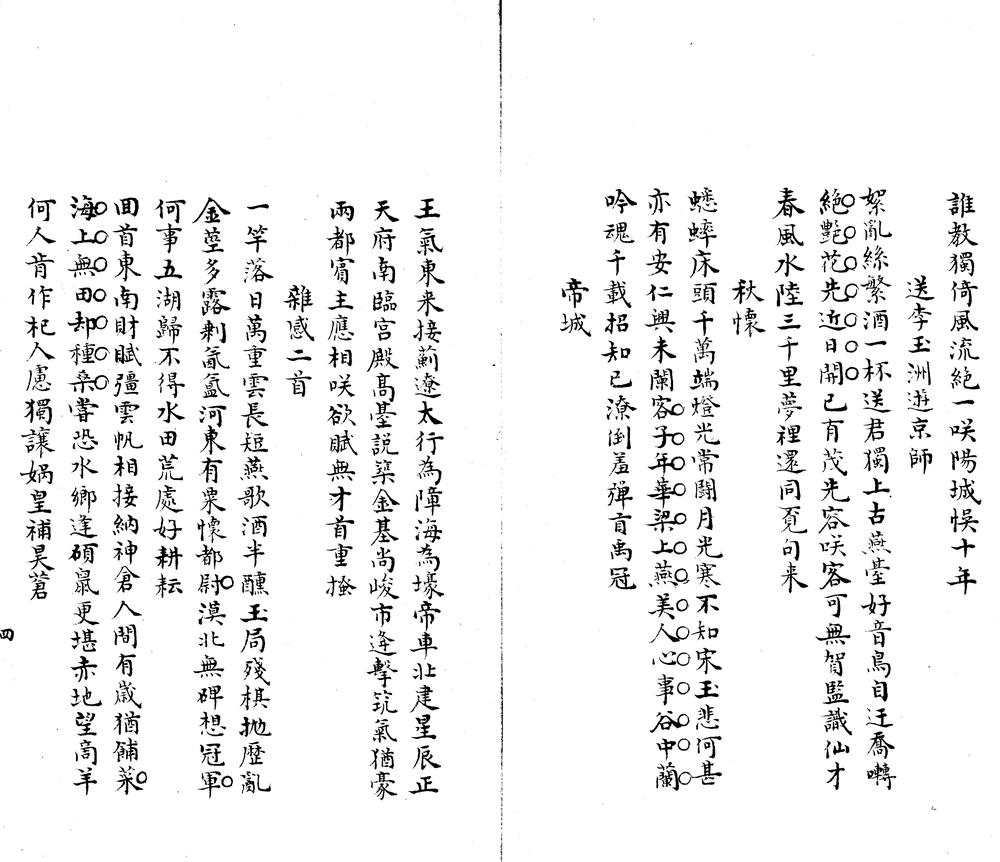 誰教獨倚風流絶一咲陽城悞十年
送李玉洲遊京師
絮亂絲繁酒一杯送君獨上古燕臺好音鳥自迂喬囀
絶艷花先近日開已有茂先容咲客可無賀監識仙才
春風水陸三千里夢裡還同覔句来
秋懷
蟋蟀床頭千萬端燈光常闘月光寒不知宋玉悲何甚
亦有安仁興未闌客子年華梁上燕美人心事谷中蘭
吟魂千載招知已潦倒羞彈貢禹冠
帝城
王氣東来接薊遼太行為障海為壕帝車北建星辰正
天府南臨宫殿髙臺説築金基尚峻市逢擊筑氣猶豪
兩都賓主應相咲欲賦無才首重搔
雜感二首
一竿落日萬重雲長短燕歌酒半醺玉局殘棋抛歴亂
金莖多露剰氤氲河東有粟懷都尉漠北無碑想冠軍
何事五湖歸不得水田荒處好耕耘
囬首東南財賦彊雲帆相接納神倉人間有歳猶餔菜
海上無田却種桒嘗恐水鄉逢碩鼠更堪赤地望商羊
何人肯作杞人慮獨讓媧皇補昊蒼
四